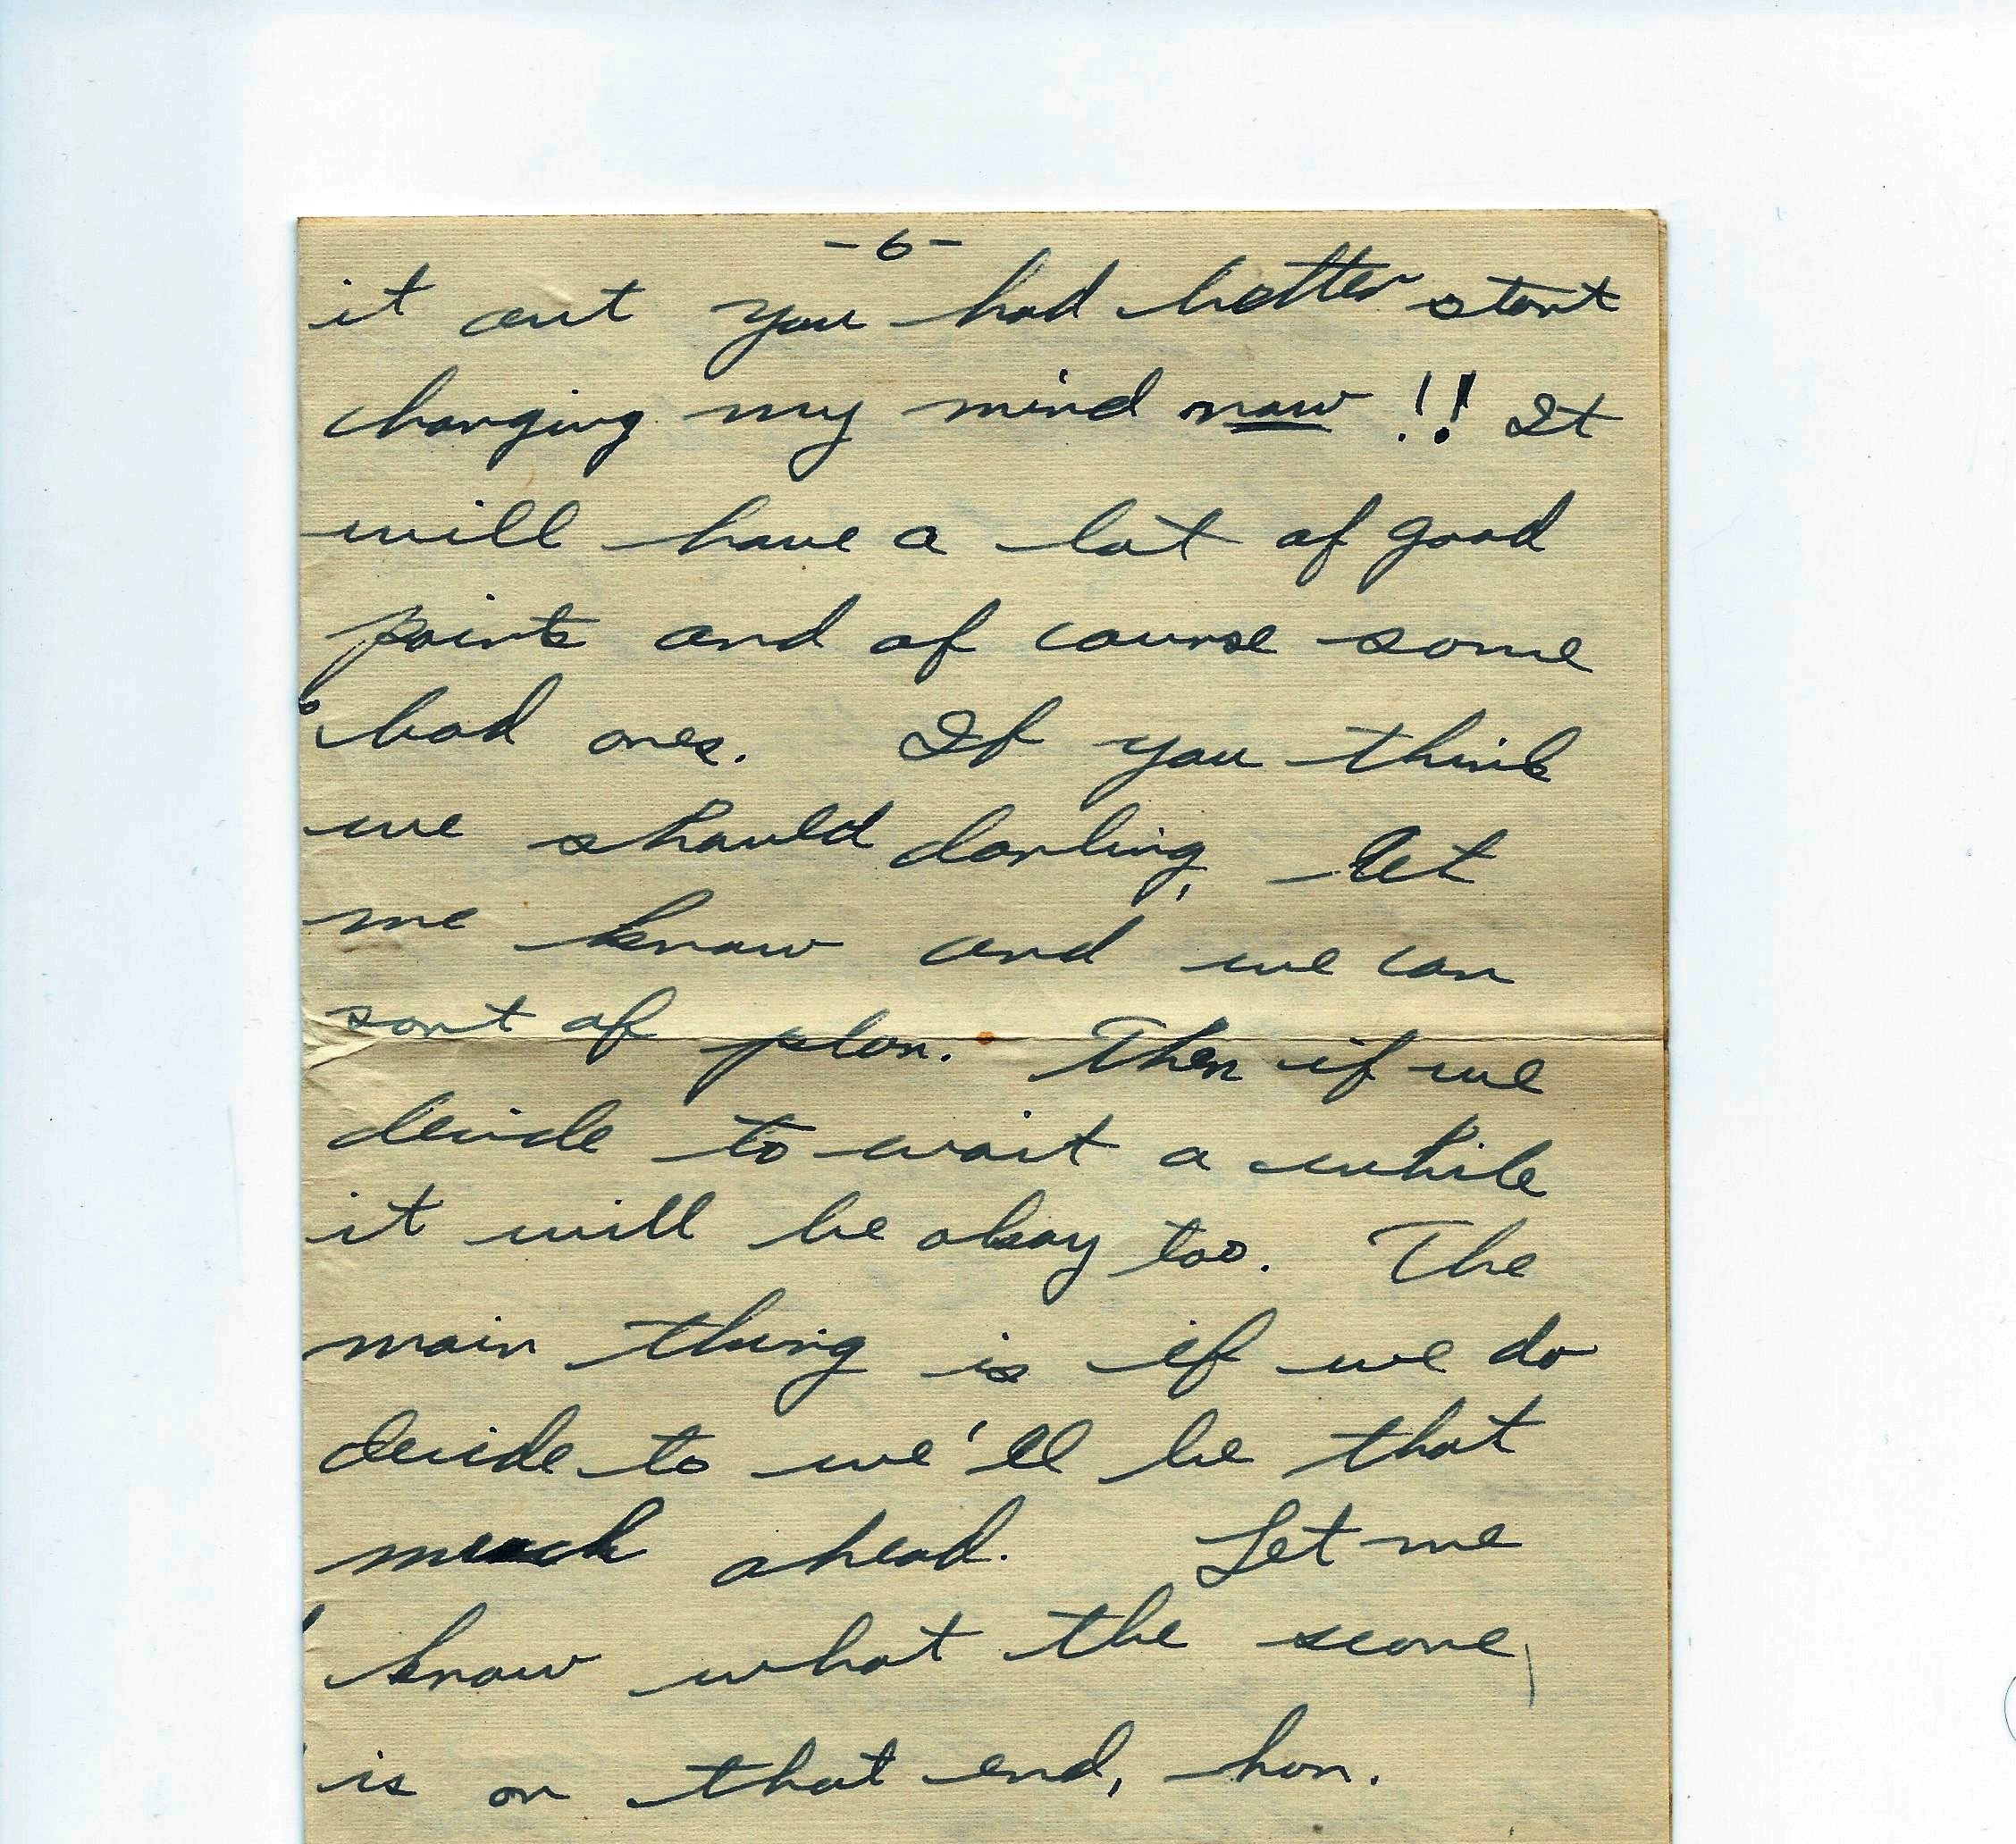 -6-
it out you had better start
changing my mind now!! It
will have a lot of good
points and of course some
bad ones. If you think
we should darling, let
me know and we can
sort of plan. Then if we
decide to wait a while
it will be okay too. The
main thing is if we do
decide to we'll be that
much ahead. Let me
know what the score
is on that end, hon.